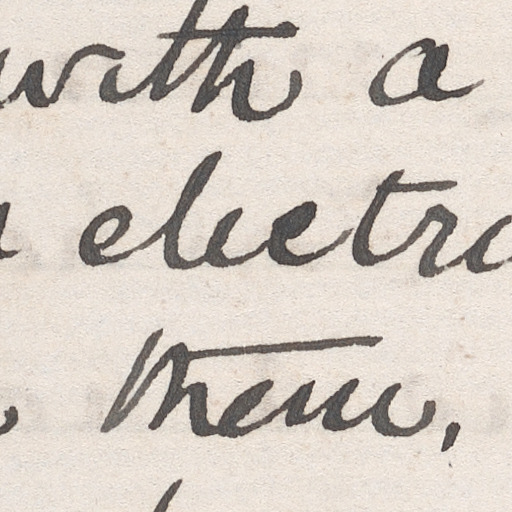 with a
electr
them,